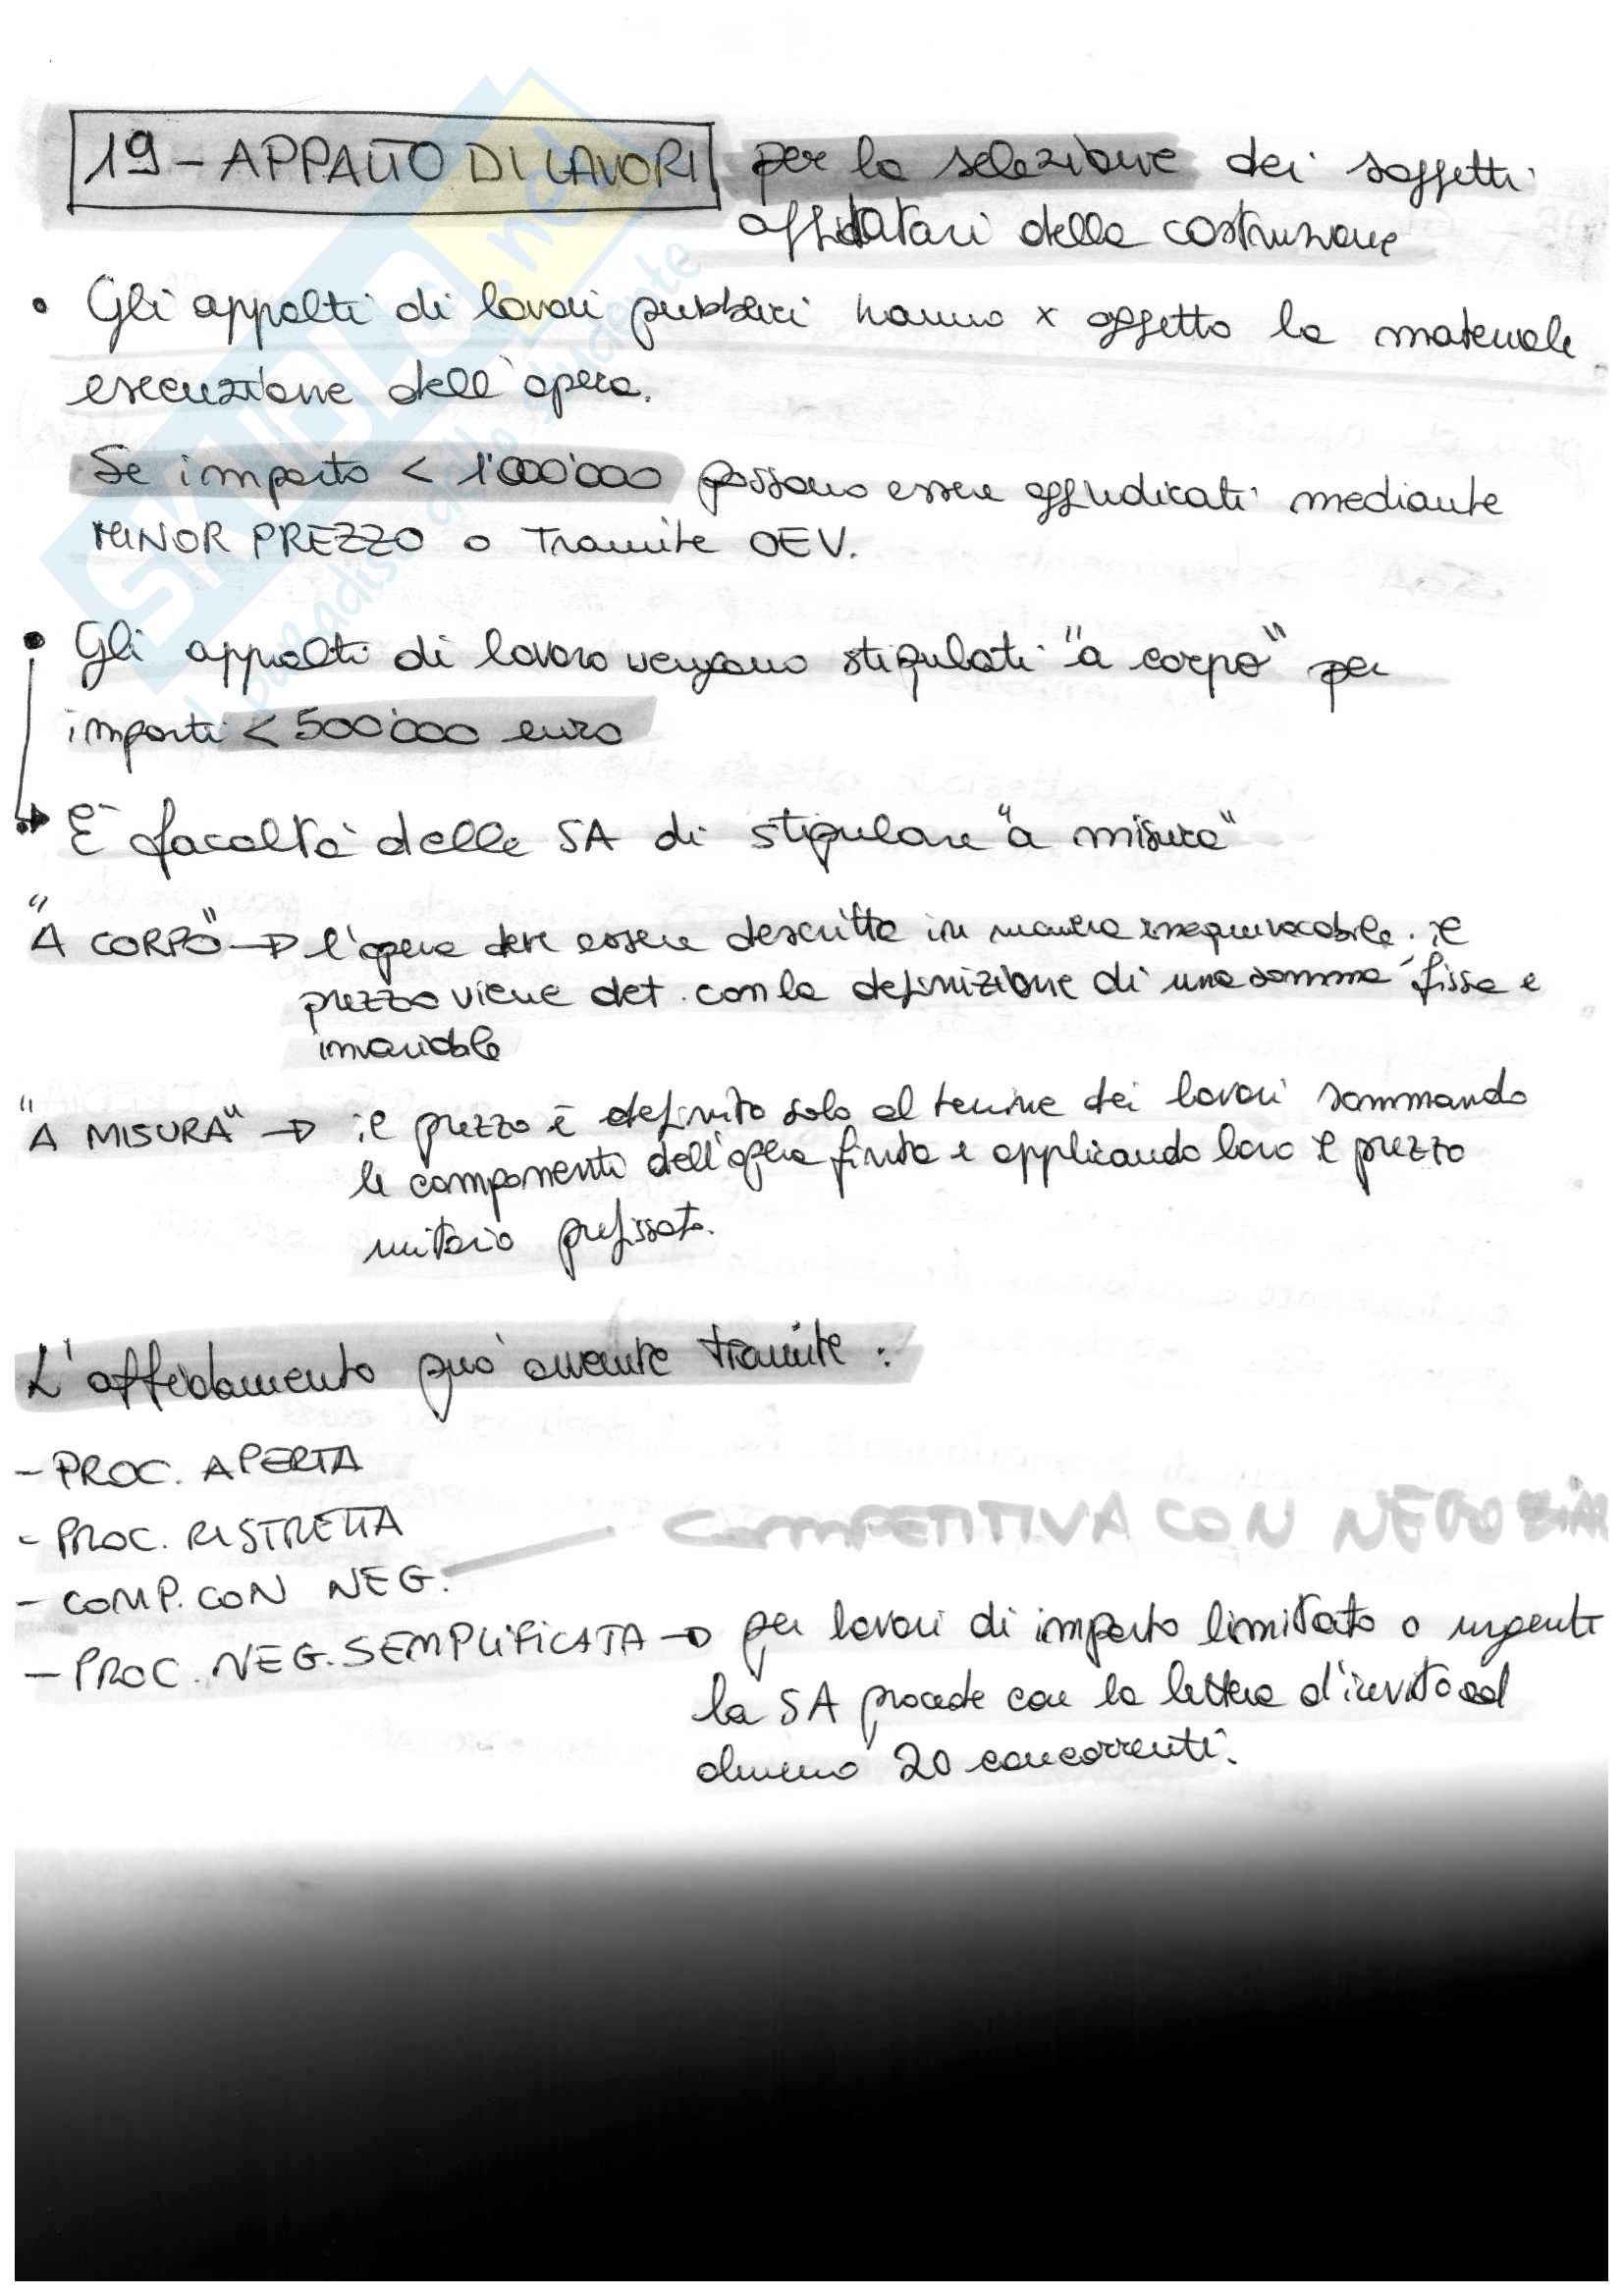 19 - APPALTO DI LAVORI per la selezione dei soggetti
affidatari della costruzione
• Gli appalti di lavori pubblici hanno x oggetto la materiale
esecuzione dell'opera.
Se importo < 1'000'000 possono essere aggiudicati mediante
MINOR PREZZO o Tramite OEV.
• Gli appalti di lavoro vengono stipulati "a corpo" per
importi < 500'000 euro
È facoltà delle SA di stipulare "a misura"
"A CORPO" → l'opera deve essere descritta in maniera inequivocabile. il
prezzo viene det. con la definizione di una somma fissa e
invariabile
"A MISURA" → il prezzo è definito solo al termine dei lavori sommando
le componenti dell'opera finita e applicando loro il prezzo
unitario prefissato.
L'affidamento può avvenire tramite:
- PROC. APERTA
- PROC. RISTRETTA
COMPETITIVA CON NEGOZIAZ
- COMP. CON NEG.
- PROC. NEG. SEMPLIFICATA → per lavori di importo limitato o urgenti
la SA procede con la lettera d'invito ad
almeno 20 concorrenti.
SKUOLA.net
il paradiso dello studente